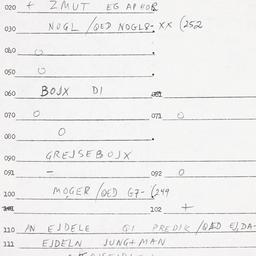 020 + ZMUT EG APHOR
030 NOGL /QED NOGL8- XX (252
040 O
050 O
060 BOJX DI 061
070 O 071 O
080 O
090 GREJSEBOJX
091 - 092 O
100 MOGER /QED G7- (249
102 +
110 IN EJDELE QI PREDIK /QED EJDA-
111 EJDELN JUNG+MAN